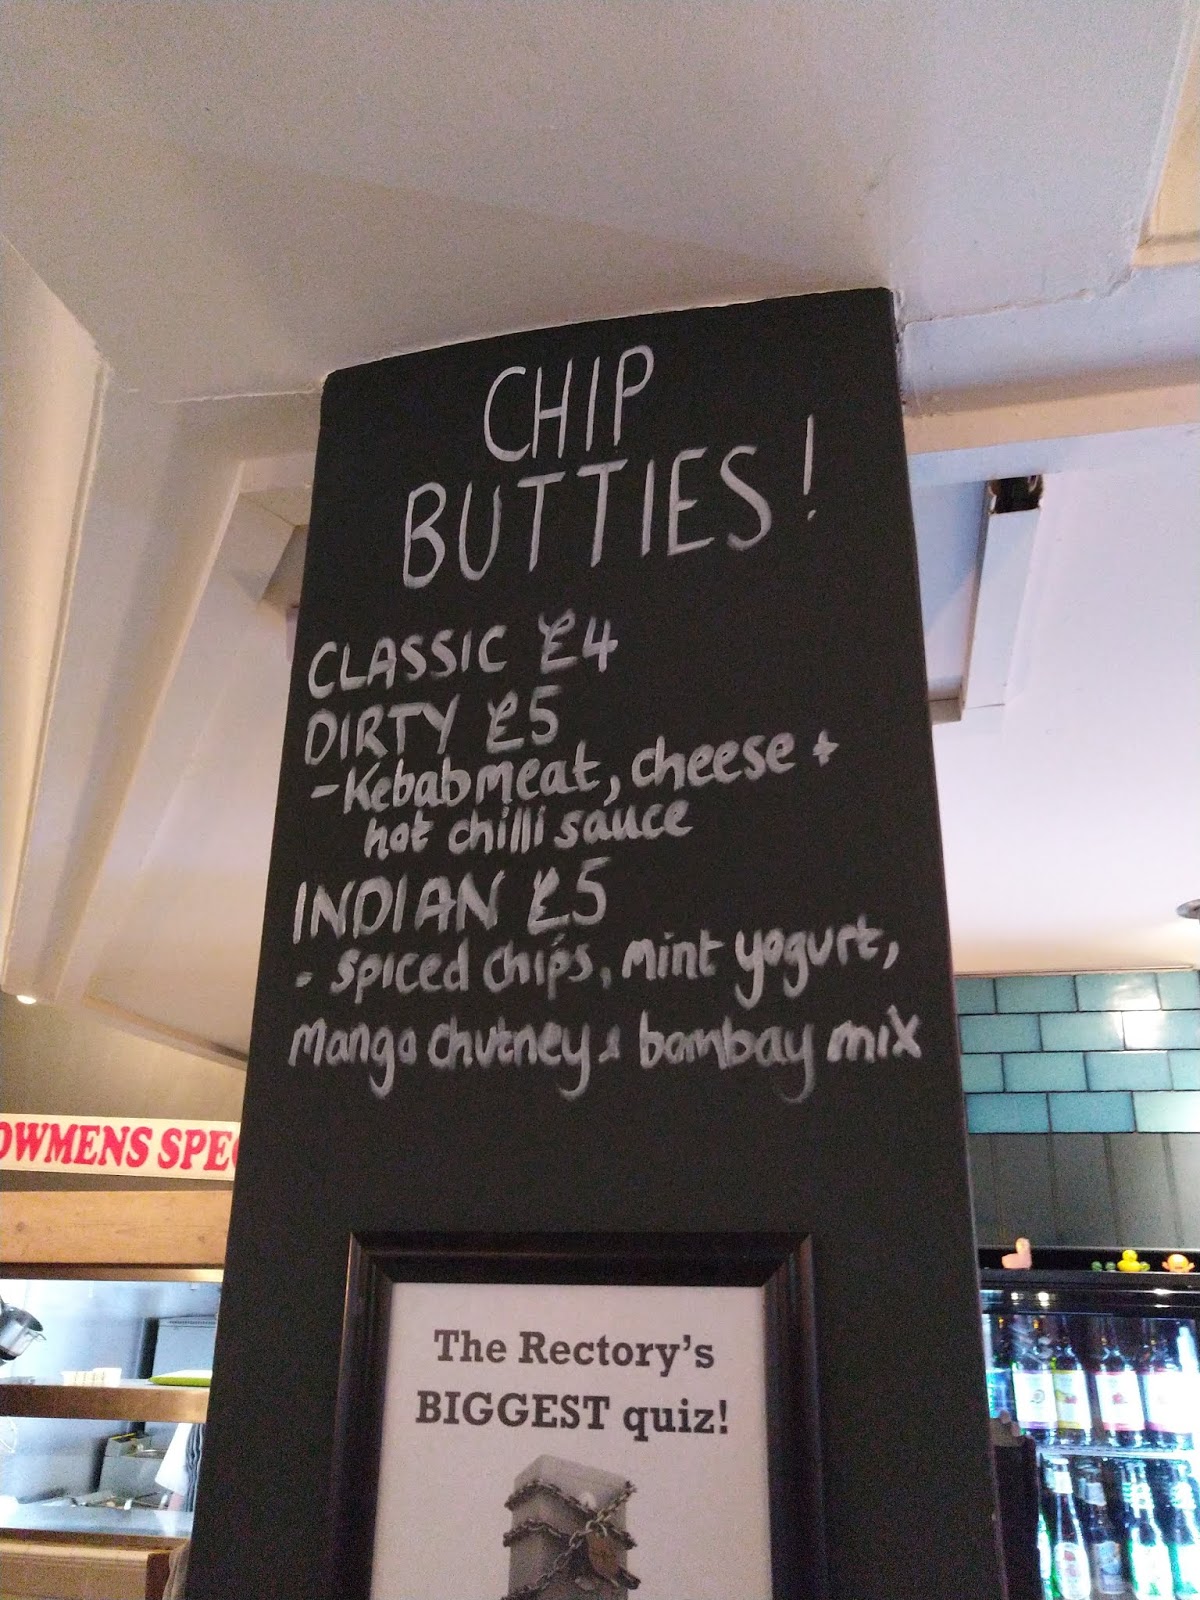 CHIP
BUTTIES!
CLASSIC £4
DIRTY £5
- Kebab meat, cheese +
hot chilli sauce
INDIAN £5
- Spiced chips, mint yogurt,
Mango chutney & bombay mix
OWMENS SPEC
The Rectory's
BIGGEST quiz!